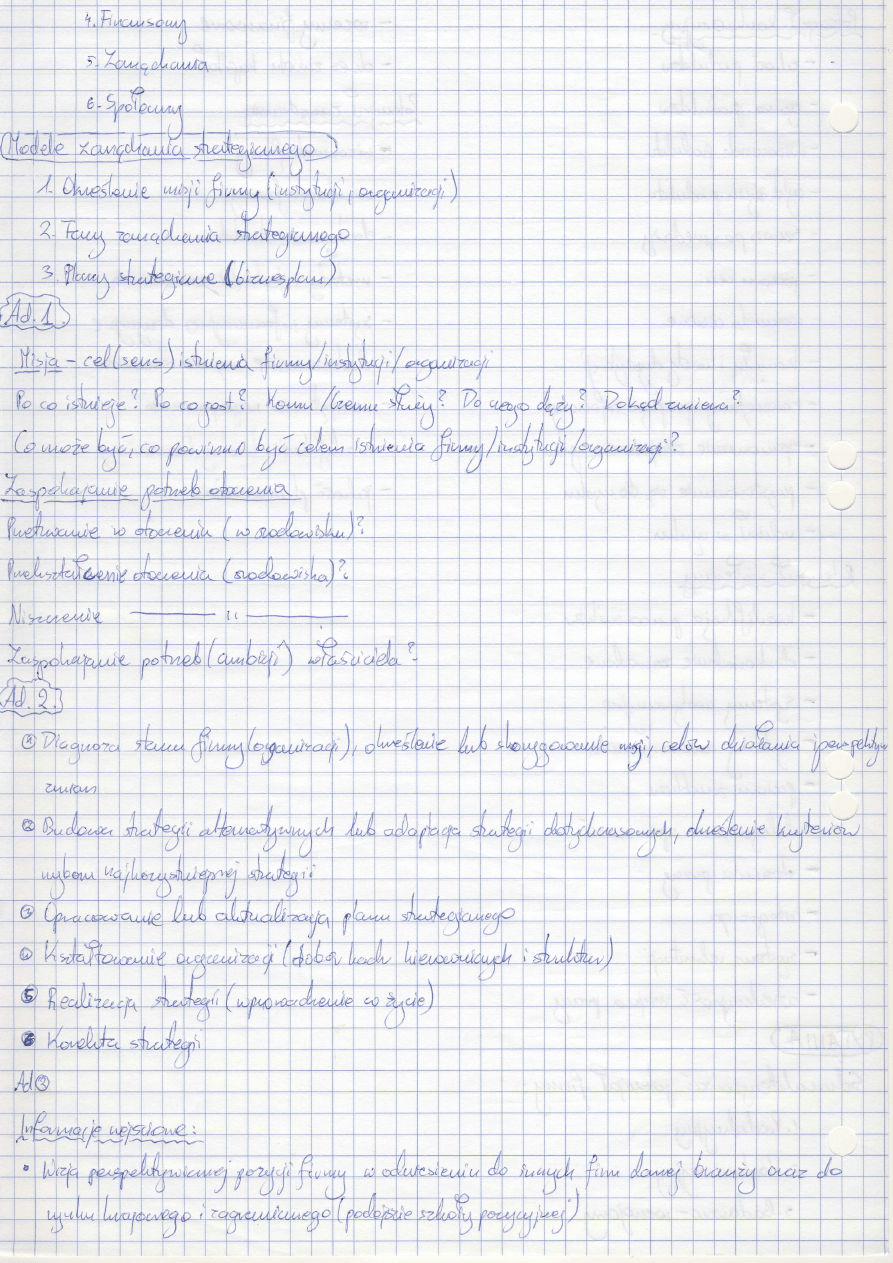 4. Finansowy
5. Zarządzania
6. Społeczny
Modele zarządzania strategicznego
1. Określanie misji firmy (instytucji, organizacji)
2. Fazy zarządzania strategicznego
3. Plany strategiczne (biznesplan)
Ad. 1.
Misja – cel (sens) istnienia firmy/instytucji/organizacji
Po co istnieje? Po co jest? Komu/Czemu służy? Do czego dąży? Dokąd zmierza?
Co może być, co powinno być celem istnienia firmy/instytucji/organizacji?
Zaspokajanie potrzeb otoczenia
Przetrwanie w otoczeniu (w środowisku)?
Przekształcenie otoczenia (środowiska)?
Niszczenie —— " ——
Zaspokajanie potrzeb (ambicji) właściciela?
Ad. 2.
① Diagnoza stanu firmy (organizacji), określenie lub skorygowanie misji, celów działania i perspektyw
zmian
② Budowa strategii alternatywnych lub adaptacja strategii dotychczasowych, określenie kryteriów
wyboru najkorzystniejszej strategii
③ Opracowanie lub aktualizacja planu strategicznego
④ Kształtowanie organizacji (dobór kadr kierowniczych i struktur)
⑤ Realizacja strategii (wprowadzenie w życie)
⑥ Korekta strategii
Ad ③
Informacje wejściowe:
• Wizja perspektywicznej pozycji firmy w odniesieniu do innych firm danej branży oraz do
rynku krajowego i zagranicznego (podejście szkoły pozycyjnej)